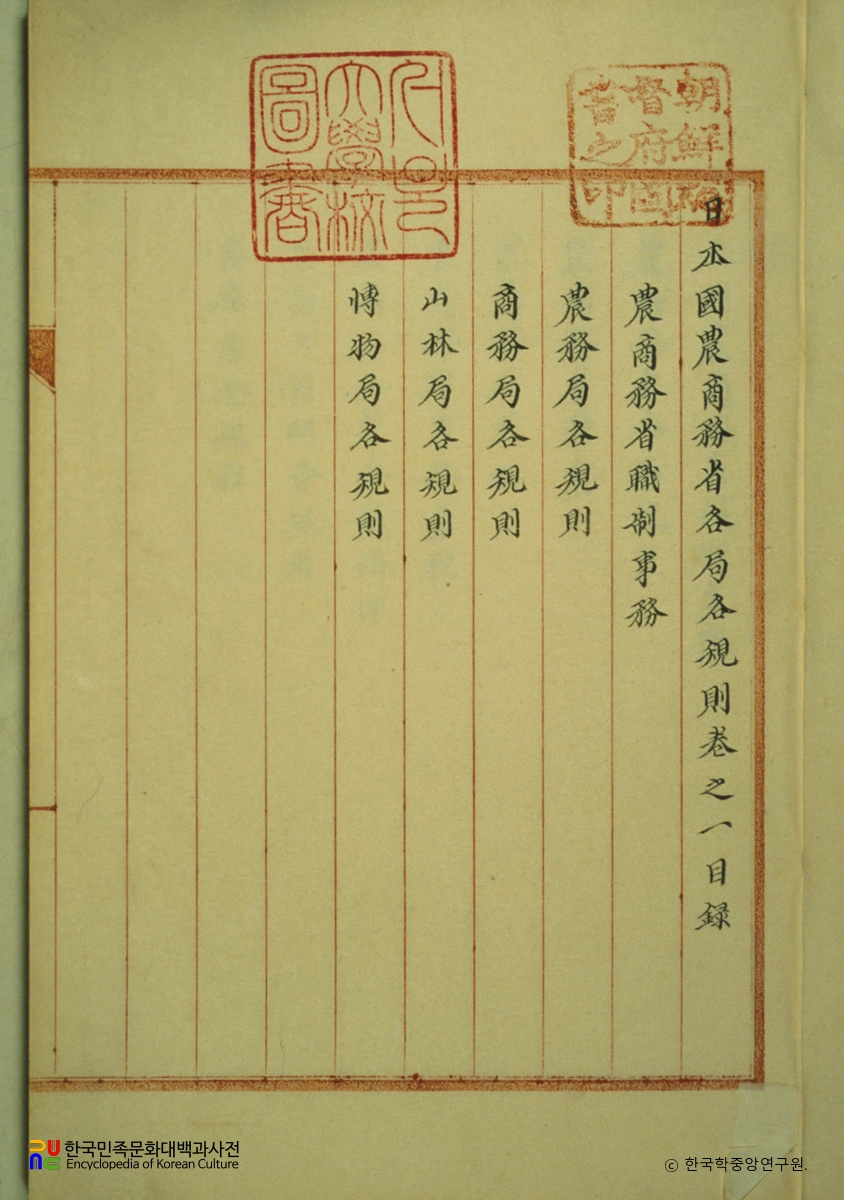 日本國農商務省各局各規則卷之一目録
農商務省職制事務
農務局各規則
商務局各規則
山林局各規則
博物局各規則
朝鮮總
督府圖
書之印
大學校
圖書
한국민족문화대백과사전
Encyclopedia of Korean Culture
ⓒ 한국학중앙연구원.